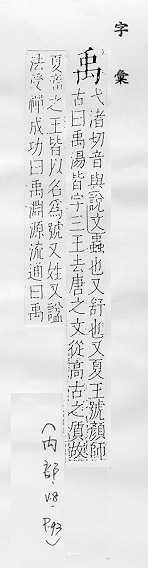 字彙
禹 弋渚切音與說文蟲也又舒也又夏王號顏師
古曰禹湯皆字三王去唐之文從高古之質故
夏商之王皆以名為號又姓又謚
法受禪成功曰禹淵源流通曰禹
(內部.08.P93)